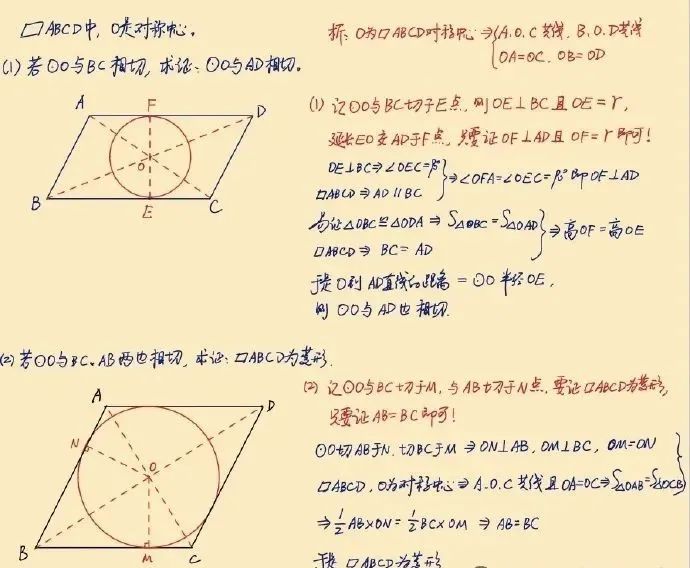 ▱ABCD中, O是对称中心。
(1) 若⊙O与BC相切, 求证: ⊙O与AD相切。
A F D
O
B E C
析: O为▱ABCD对称中心 ⇒ { A.O.C共线. B.O.D共线
OA=OC. OB=OD
(1) 记⊙O与BC切于E点, 则OE⊥BC且OE=r,
延长EO交AD于F点, 只要证OF⊥AD且OF=r即可!
OE⊥BC⇒∠OEC=90°
▱ABCD⇒AD∥BC } ⇒∠OFA=∠OEC=90°即OF⊥AD
易证△OBC≌△ODA ⇒ S△OBC=S△OAD
▱ABCD⇒ BC=AD } ⇒高OF=高OE
于是O到AD直线的距离=⊙O半径OE,
则⊙O与AD也相切.
(2) 若⊙O与BC、AB两边相切, 求证: ▱ABCD为菱形.
A D
N
O
B M C
(2) 记⊙O与BC切于M, 与AB切于N点, 要证▱ABCD为菱形,
只要证AB=BC即可!
⊙O切AB于N, 切BC于M ⇒ON⊥AB, OM⊥BC, OM=ON
▱ABCD, O为对称中心⇒A.O.C共线且OA=OC⇒S△OAB=S△OCB }
⇒½AB×ON=½BC×OM ⇒ AB=BC
于是 ▱ABCD为菱形